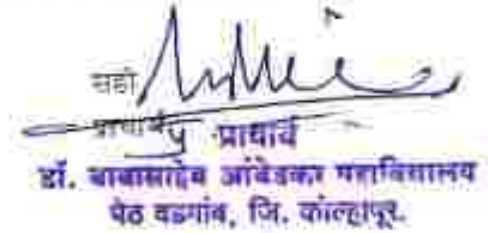 सही
प्राचार्य
प्राचार्य
डॉ. बाबासाहेब आंबेडकर महाविद्यालय
पेठ वडगांव, जि. कोल्हापूर.